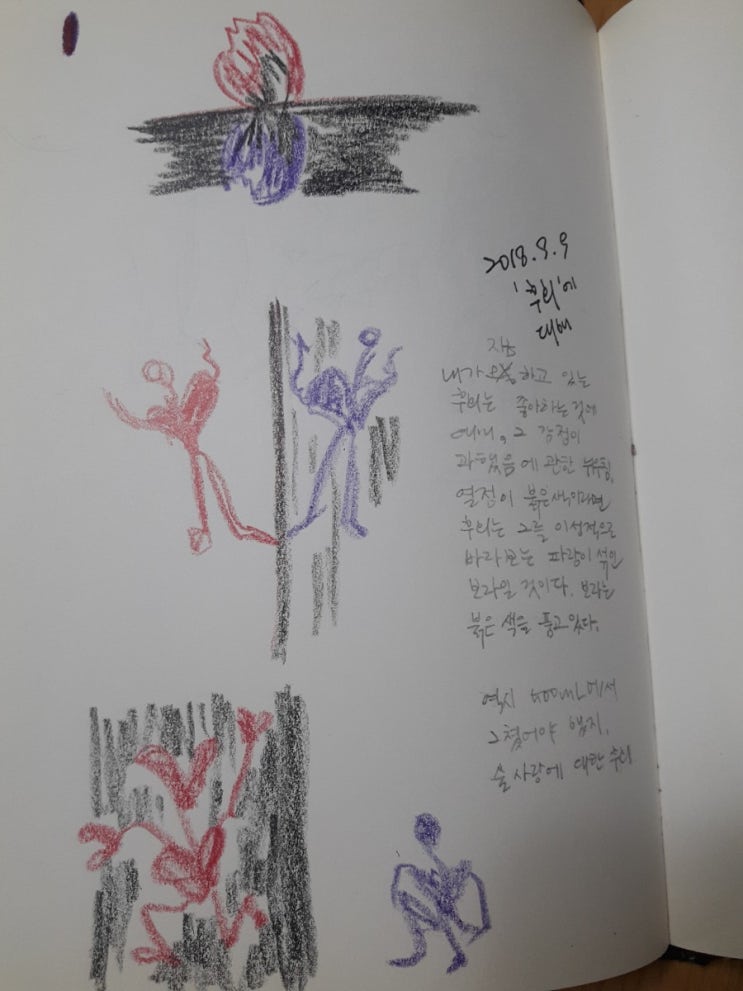 2018.9.9
'후회'에
대해
지금
내가 하고 있는
후회는 좋아하는것에
아니, 그 감정이
과했음에 관한 뉘우침.
열정이 붉은색이라면
후회는 그를 이성적으로
바라보는 파랑이 섞인
보라일 것이다. 보라는
붉은 색을 품고있다.
역시 500mL에서
그쳤어야 했지.
술 사랑에 대한